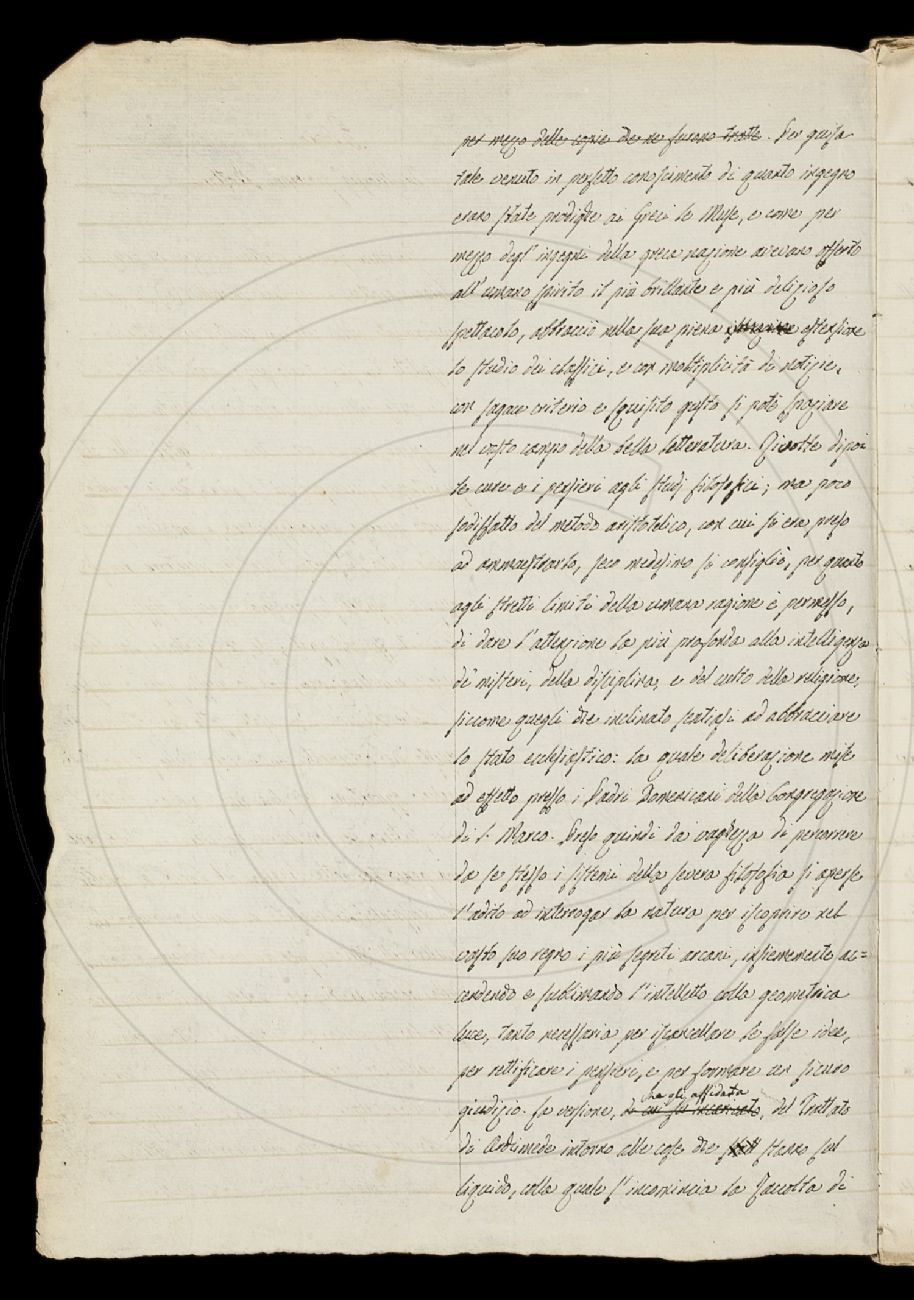 per mezzo delle copie che ne furono tratte. Per guisa
tale venuto in perfetto conoscimento di quanto ingegno
erano state prodighe ai Greci le Muse, e come per
mezzo degl' ingegni della greca nazione avevano offerto
all' umano spirito il più brillante e più delizioso
spettacolo, abbracciò nella sua piena estensione
lo studio dei classici, e con moltiplicità di notizie,
con sagace criterio e squisito gusto si potè spaziare
nel vasto campo della bella letteratura. Rivolse dipoi
le cure e i pensieri agli studj filosofici; ma poco
sodisfatto del metodo aristotelico, con cui si era preso
ad ammaestrarlo, seco medesimo si consigliò, per quanto
agli stretti limiti della umana ragione è permesso,
di dare l'attenzione la più profonda alla intelligenza
de' misteri, della disciplina, e del culto della religione,
siccome quegli che inclinato sentiasi ad abbracciare
lo stato ecclesiastico: la quale deliberazione mise
ad effetto presso i Padri Domenicani della Congregazione
di S. Marco. Preso quindi da vaghezza di percorrere
da se stesso i sistemi della severa filosofia si aperse
l'adito ad interrogar la natura per iscoprire nel
vasto suo regno i più segreti arcani, insiememente ac=
cendendo e sublimando l'intelletto colla geometrica
luce, tanto necessaria per iscancellare le false idee,
per rettificare i pensieri, e per formare un sicuro
ha gli affidata
giudizio. La versione, di cui fu incaricato, del Trattato
di Archimede intorno alle cose che stanno sul
liquido, colla quale s'incomincia la Raccolta di